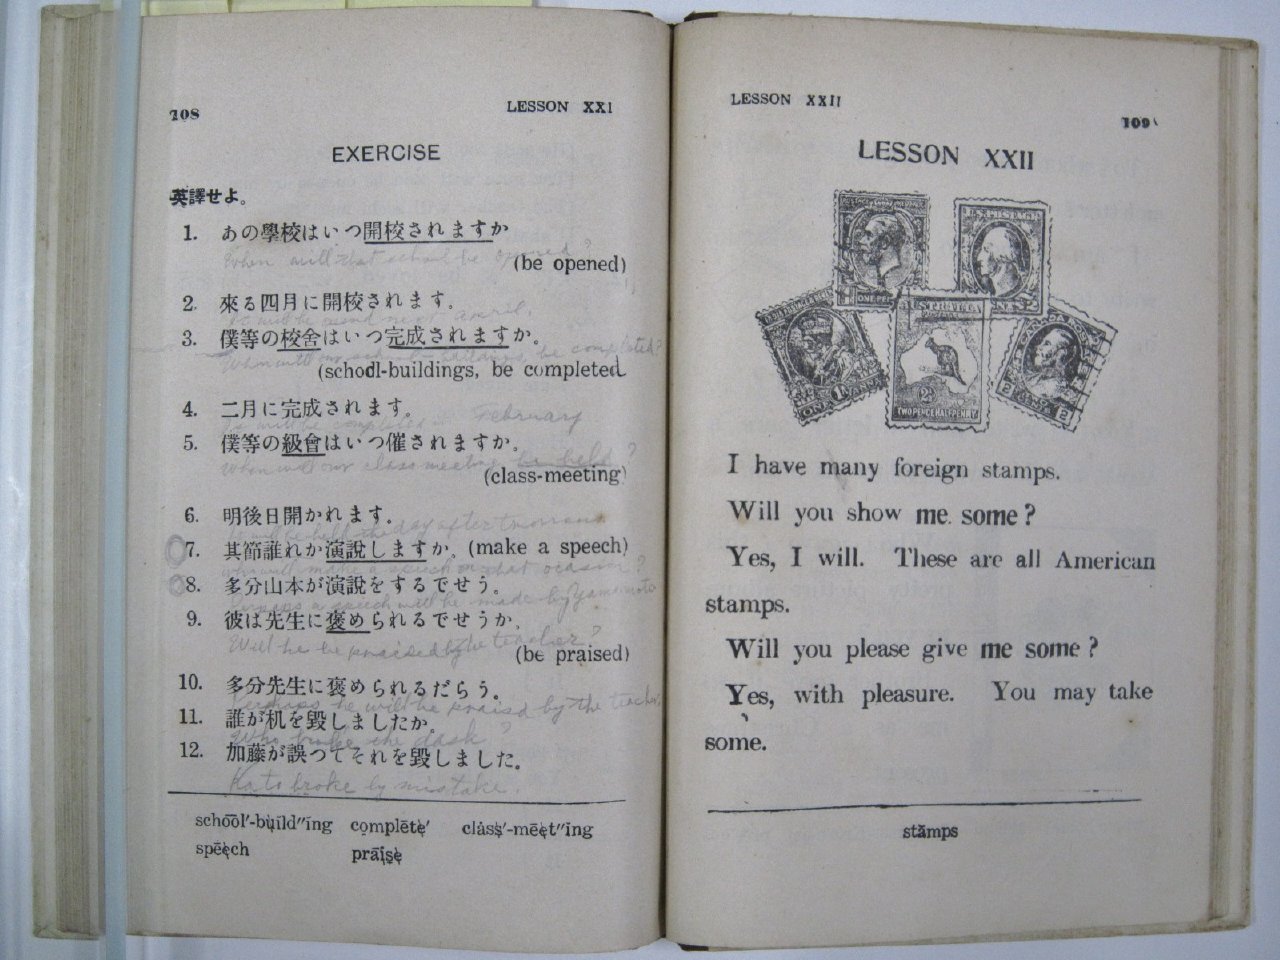 108
LESSON XXI
EXERCISE
英譯せよ。
1. あの學校はいつ開校されますか
When will that school be opened?
(be opened)
2. 來る四月に開校されます。
next April.
3. 僕等の校舍はいつ完成されますか。
be completed?
(school-buildings, be completed
4. 二月に完成されます。
will be completed February
5. 僕等の級會はいつ催されますか。
When will our class meeting be held?
(class-meeting)
6. 明後日開かれます。
be held the day after tomorrow
7. 其節誰れか演說しますか。(make a speech)
who will make a speech on that ocasion?
8. 多分山本が演說をするでせう。
Perhaps a speech will be made by Yamamoto
9. 彼は先生に褒められるでせうか。
Will he be praised by the teacher?
(be praised)
10. 多分先生に褒められるだらう。
Perhaps he will be praised by the teacher.
11. 誰が机を毀しましたか。
Who broke the dask?
12. 加藤が誤つてそれを毀しました。
Kato broke by mistake.
school'-build"ing complete' class'-meet"ing
speech praise
LESSON XXII
109
LESSON XXII
ONE PENNY
TWO PENCE HALFPENNY
I have many foreign stamps.
Will you show me some?
Yes, I will. These are all American
stamps.
Will you please give me some?
Yes, with pleasure. You may take
some.
stamps